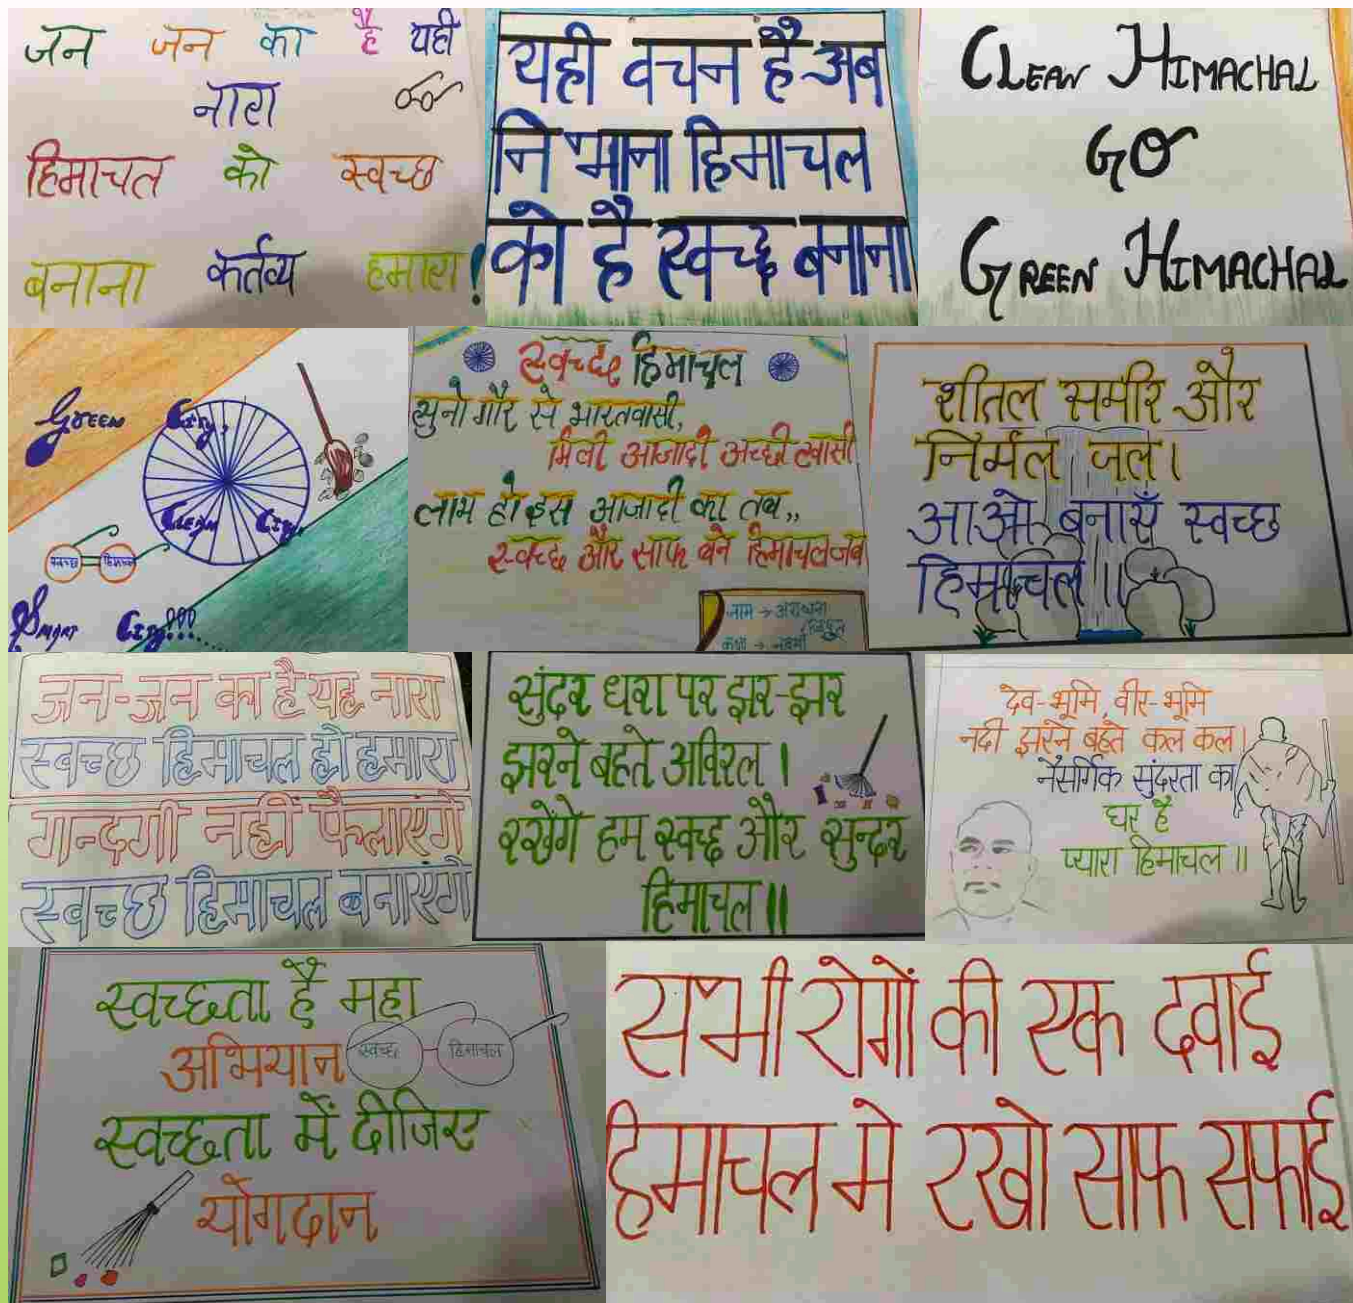 जन जन का है यही
नारा
हिमाचल को स्वच्छ
बनाना कर्तव्य हमारा!
यही वचन है अब
निभाना हिमाचल
को है स्वच्छ बनाना
CLEAN HIMACHAL
GO
GREEN HIMACHAL
GREEN City,
CLEAN City,
स्वच्छ हिमाचल
SMART City!!!......
स्वच्छ हिमाचल
सुनो गौर से भारतवासी,
मिली आजादी अच्छी
लाभ हो इस आजादी का तब,,
स्वच्छ और साफ बने हिमाचल जब
नाम →
कक्षा → नवमी
शीतल समीर और
निर्मल जल।
आओ बनाएँ स्वच्छ
हिमाचल॥
जन-जन का है यह नारा
स्वच्छ हिमाचल हो हमारा
गन्दगी नहीं फैलाएंगे
स्वच्छ हिमाचल बनाएंगे
सुंदर धरा पर झर-झर
झरने बहते अविरल।
रखेंगे हम स्वच्छ और सुन्दर
हिमाचल॥
देव-भूमि, वीर-भूमि
नदी झरने बहते कल कल।
नैसर्गिक सुंदरता का
घर है
प्यारा हिमाचल॥
स्वच्छता है महा
अभियान स्वच्छ हिमाचल
स्वच्छता में दीजिए
योगदान
सभी रोगों की एक दवाई
हिमाचल मे रखो साफ सफाई